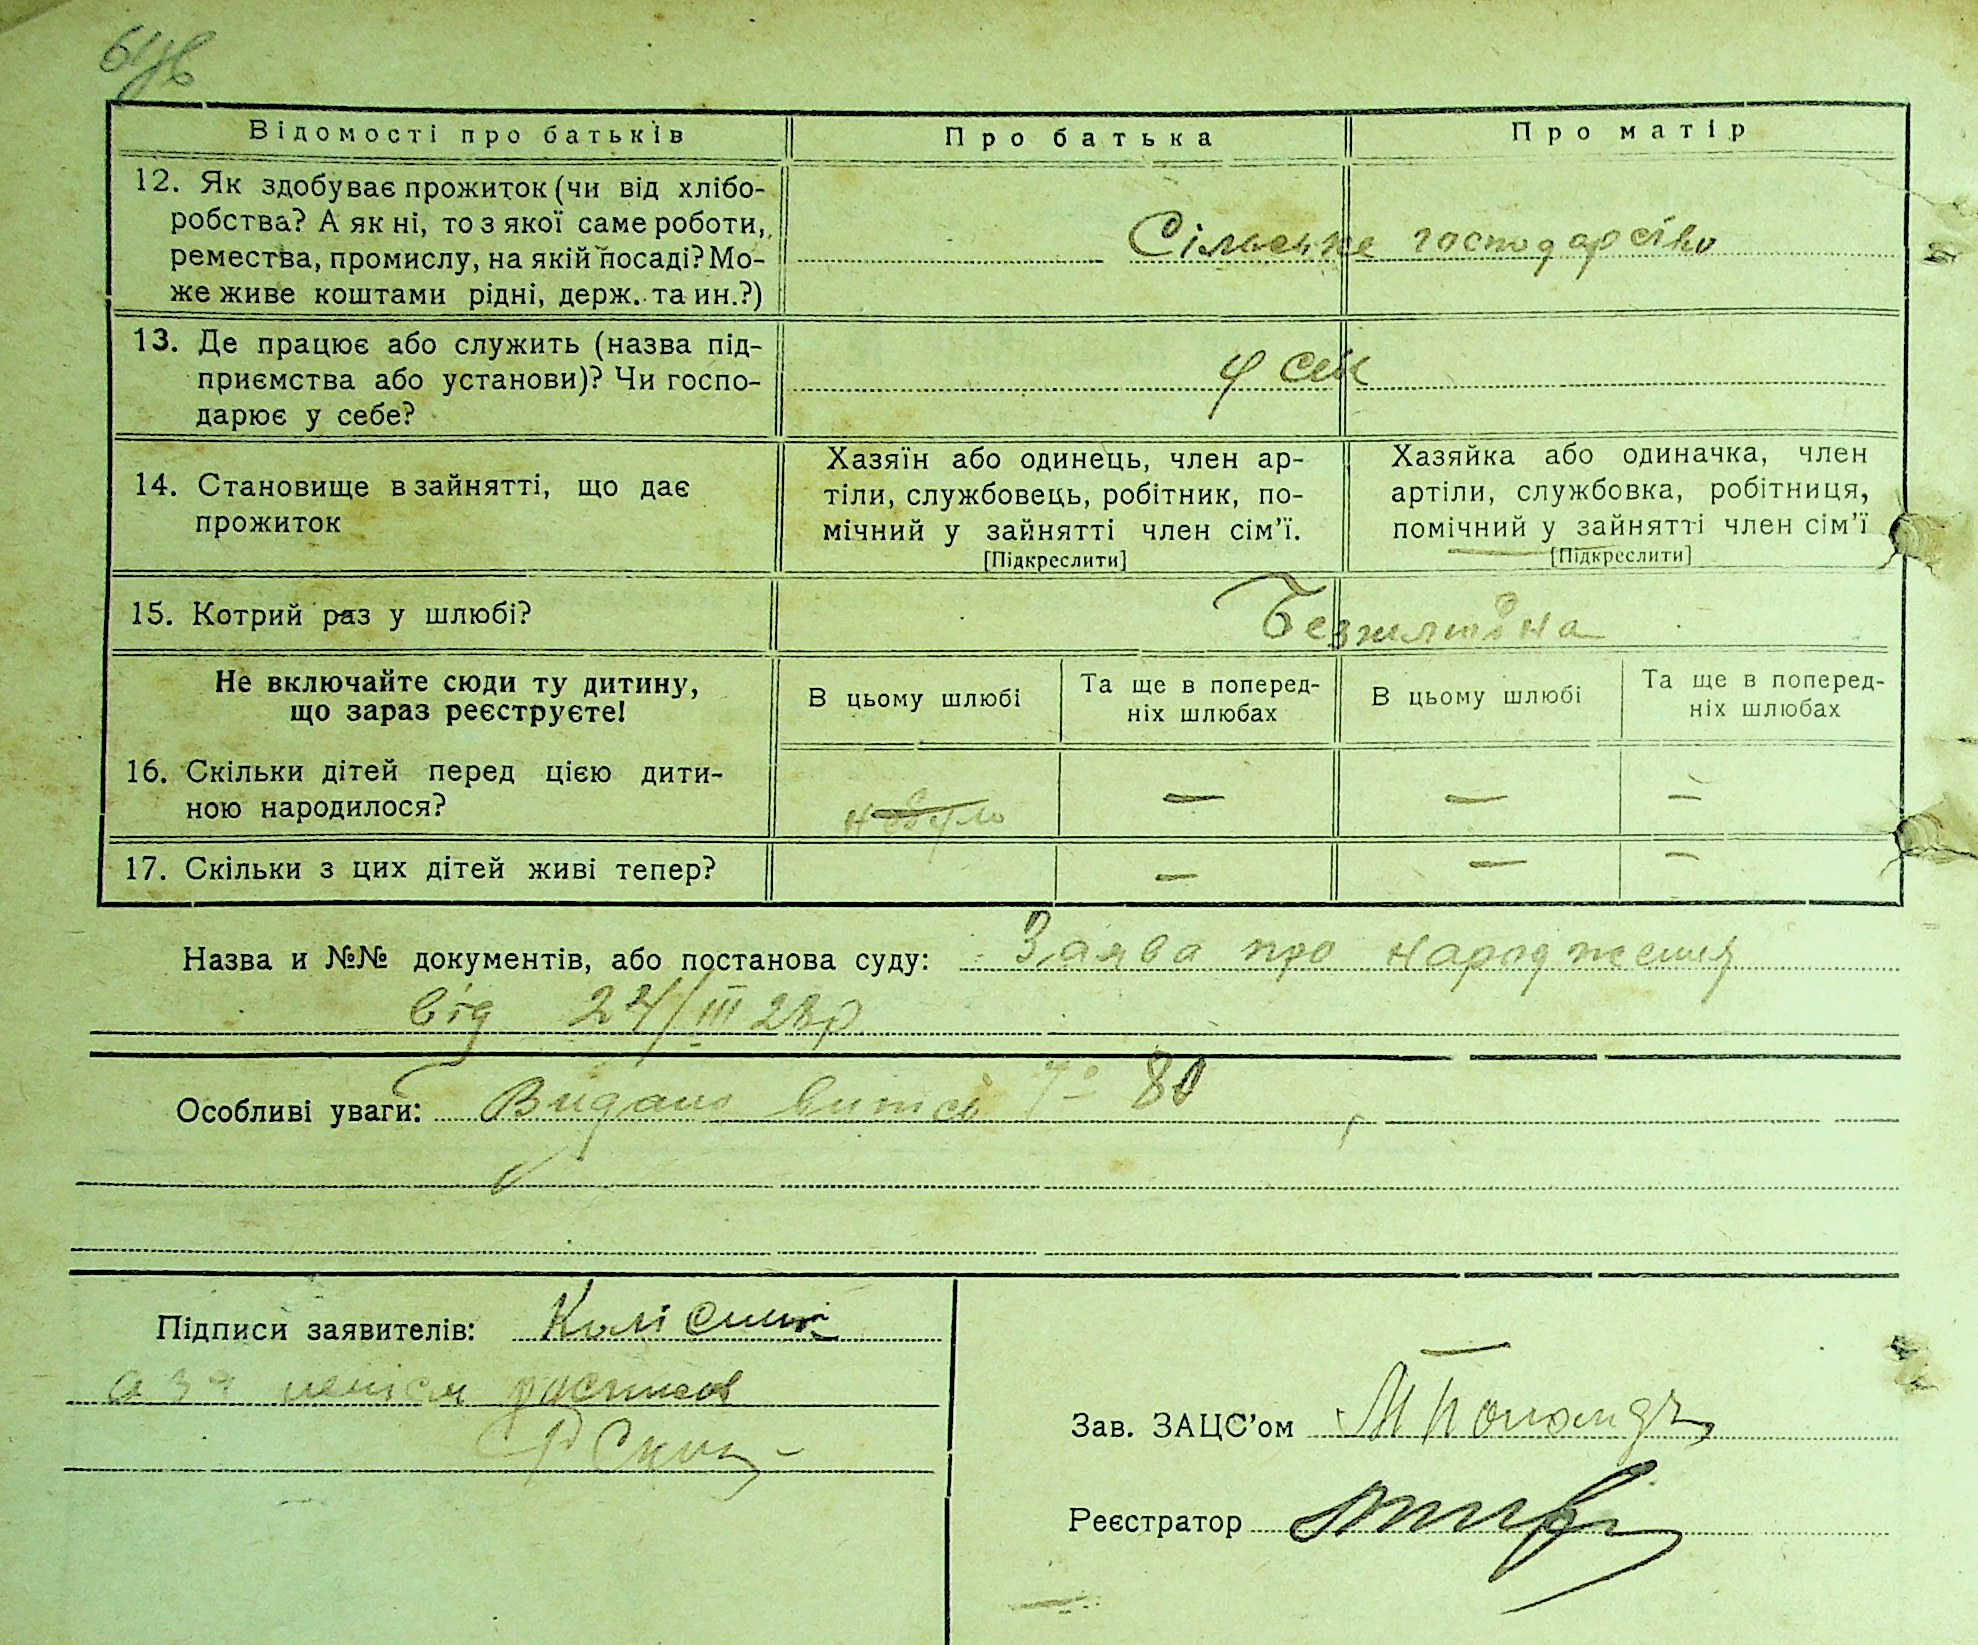 Відомості про батьків
Про батька
Про матір
12. Як здобуває прожиток (чи від хлібо-
робства? А як ні, то з якої саме роботи,
ремества, промислу, на якій посаді? Мо-
же живе коштами рідні, держ. та ин.?)
Сільське господарство
13. Де працює або служить (назва під-
приємства або установи)? Чи госпо-
дарює у себе?
14. Становище в зайнятті, що дає
прожиток
Хазяїн або одинець, член ар-
тіли, службовець, робітник, по-
мічний у зайнятті член сім'ї.
[Підкреслити]
Хазяйка або одиначка, член
артіли, службовка, робітниця,
помічний у зайнятті член сім'ї
[Підкреслити]
15. Котрий раз у шлюбі?
Не включайте сюди ту дитину,
що зараз реєструєте!
В цьому шлюбі
Та ще в поперед-
ніх шлюбах
В цьому шлюбі
Та ще в поперед-
ніх шлюбах
16. Скільки дітей перед цією дити-
ною народилося?
не було — — —
17. Скільки з цих дітей живі тепер?
— — —
Назва и №№ документів, або постанова суду: Заява про народження
від 24/III 28р
Особливі уваги: Видано витяг № 80
Підписи заявителів:
Зав. ЗАЦС'ом
Реєстратор